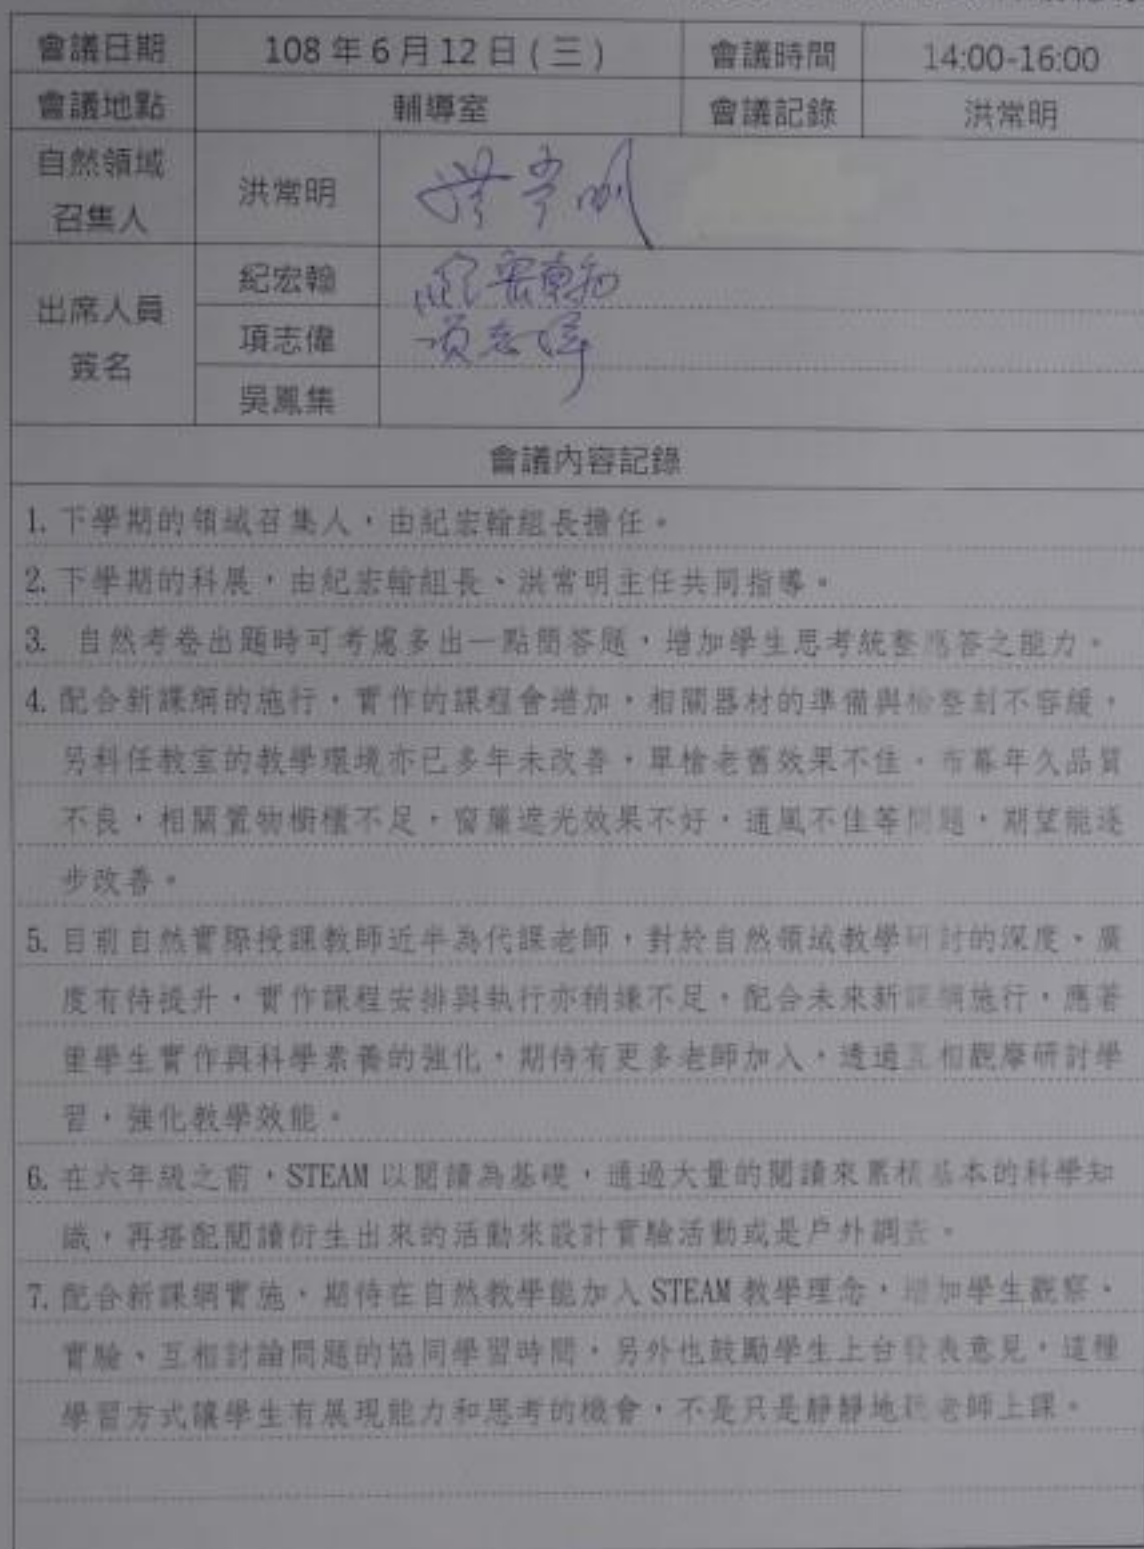 會議日期 108年6月12日(三) 會議時間 14:00-16:00
會議地點 輔導室 會議記錄 洪常明
自然領域
召集人 洪常明 洪常明
出席人員
簽名
紀宏翰 紀宏翰
項志偉 項志偉
吳鳳集
會議內容記錄
1. 下學期的領域召集人,由紀宏翰組長擔任。
2. 下學期的科展,由紀宏翰組長、洪常明主任共同指導。
3. 自然考卷出題時可考慮多出一點簡答題,增加學生思考統整應答之能力。
4. 配合新課綱的施行,實作的課程會增加,相關器材的準備與檢整刻不容緩,
另科任教室的教學環境亦已多年未改善,單槍老舊效果不佳、布幕年久品質
不良,相關置物櫥櫃不足,窗簾遮光效果不好,通風不佳等問題,期望能逐
步改善。
5. 目前自然實際授課教師近半為代課老師,對於自然領域教學研討的深度、廣
度有待提升,實作課程安排與執行亦稍嫌不足,配合未來新課綱施行,應著
重學生實作與科學素養的強化,期待有更多老師加入,透過互相觀摩研討學
習,強化教學效能。
6. 在六年級之前,STEAM 以閱讀為基礎,通過大量的閱讀來累積基本的科學知
識,再搭配閱讀衍生出來的活動來設計實驗活動或是戶外調查。
7. 配合新課綱實施,期待在自然教學能加入 STEAM 教學理念,增加學生觀察、
實驗、互相討論問題的協同學習時間,另外也鼓勵學生上台發表意見,這種
學習方式讓學生有展現能力和思考的機會,不是只是靜靜地聽老師上課。